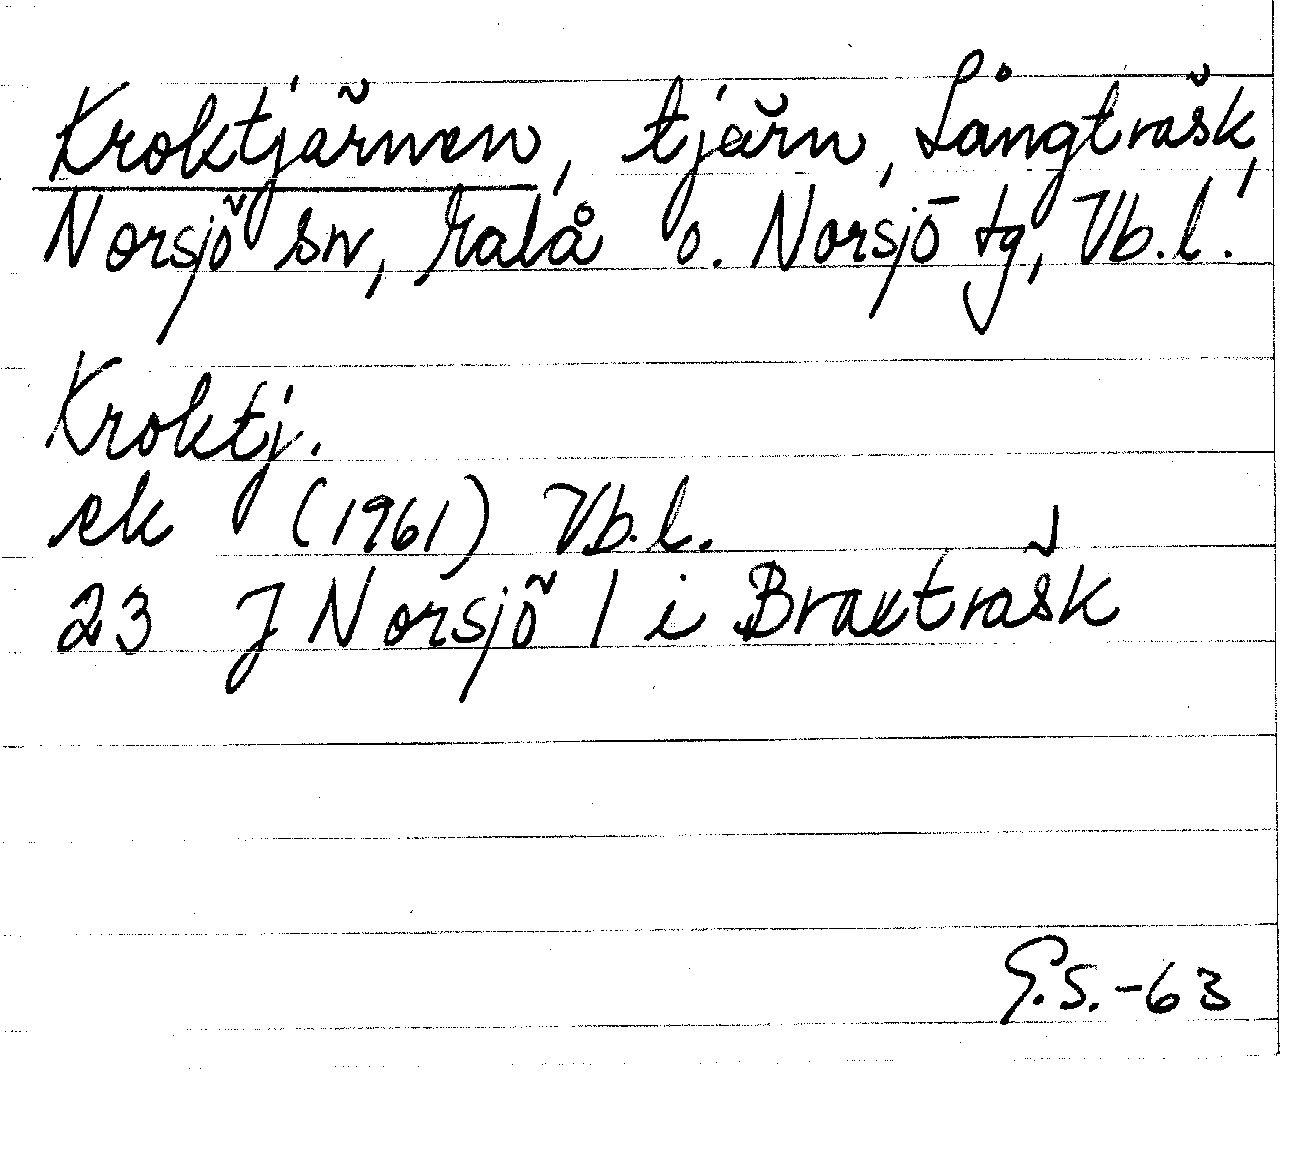 Kroktjärnen, tjärn, Långträsk,
Norsjö sn, Malå o. Norsjö tg, Vb.l.
Kroktj.
ek (1961) Vb.l.
23 J Norsjö l i Braxträsk
G.S.-63